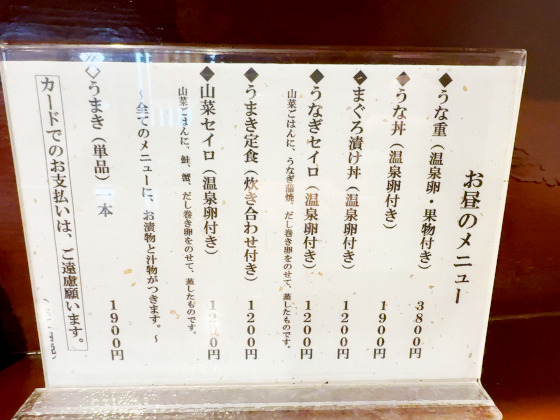 お昼のメニュー
◆うな重（温泉卵・果物付き） 3800円
◆うな丼（温泉卵付き） 1900円
◆まぐろ漬け丼（温泉卵付き） 1200円
◆うなぎセイロ（温泉卵付き） 1200円
山菜ごはんに、うなぎ蒲焼、だし巻き卵をのせて、蒸したものです。
◆うまき定食（炊き合わせ付き） 1200円
◆山菜セイロ（温泉卵付き） 1200円
山菜ごはんに、鮭、蟹、だし巻き卵をのせて、蒸したものです。
～全てのメニューに、お漬物と汁物がつきます。～
◇うまき（単品）一本 1900円
カードでのお支払いは、ご遠慮願います。